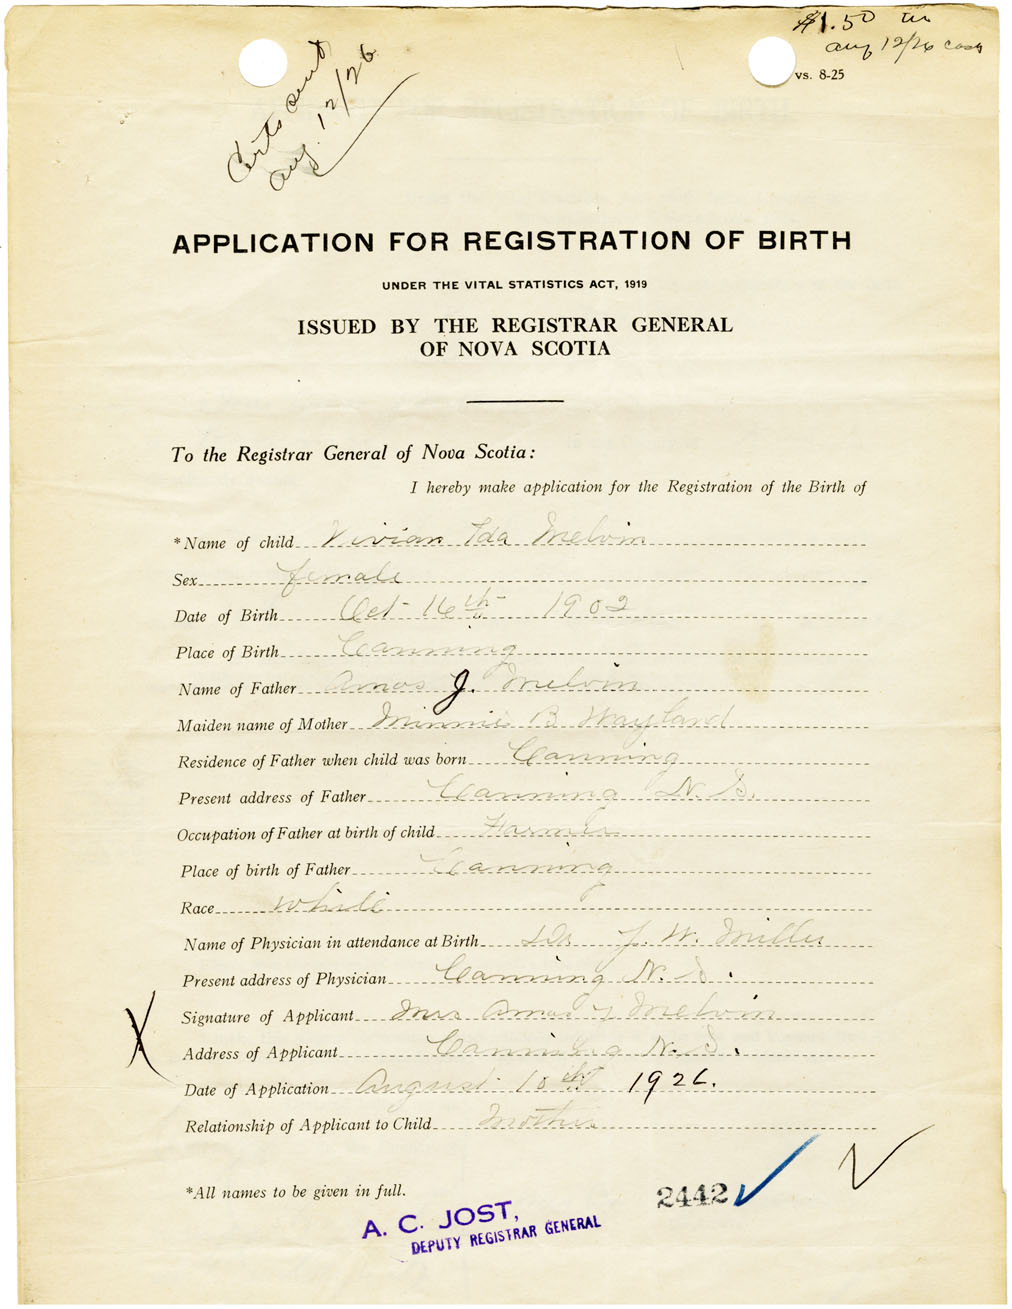 $1.50
Aug 12/26 cash
vs. 8-25
Certs sent
Aug. 12/26
APPLICATION FOR REGISTRATION OF BIRTH
UNDER THE VITAL STATISTICS ACT, 1919
ISSUED BY THE REGISTRAR GENERAL
OF NOVA SCOTIA
To the Registrar General of Nova Scotia:
I hereby make application for the Registration of the Birth of
*Name of child Vivian Ida Melvin
Sex female
Date of Birth Oct 16th 1902
Place of Birth Canning
Name of Father Amos J. Melvin
Maiden name of Mother Minnie B. Wayland
Residence of Father when child was born Canning
Present address of Father Canning N. S.
Occupation of Father at birth of child Farmer
Place of birth of Father Canning
Race White
Name of Physician in attendance at Birth Dr J. W. Miller
Present address of Physician Canning N. S.
X Signature of Applicant Mrs Amos J Melvin
Address of Applicant Canning N. S.
Date of Application August 10th 1926.
Relationship of Applicant to Child Mother
*All names to be given in full.
2442
A. C. JOST,
DEPUTY REGISTRAR GENERAL